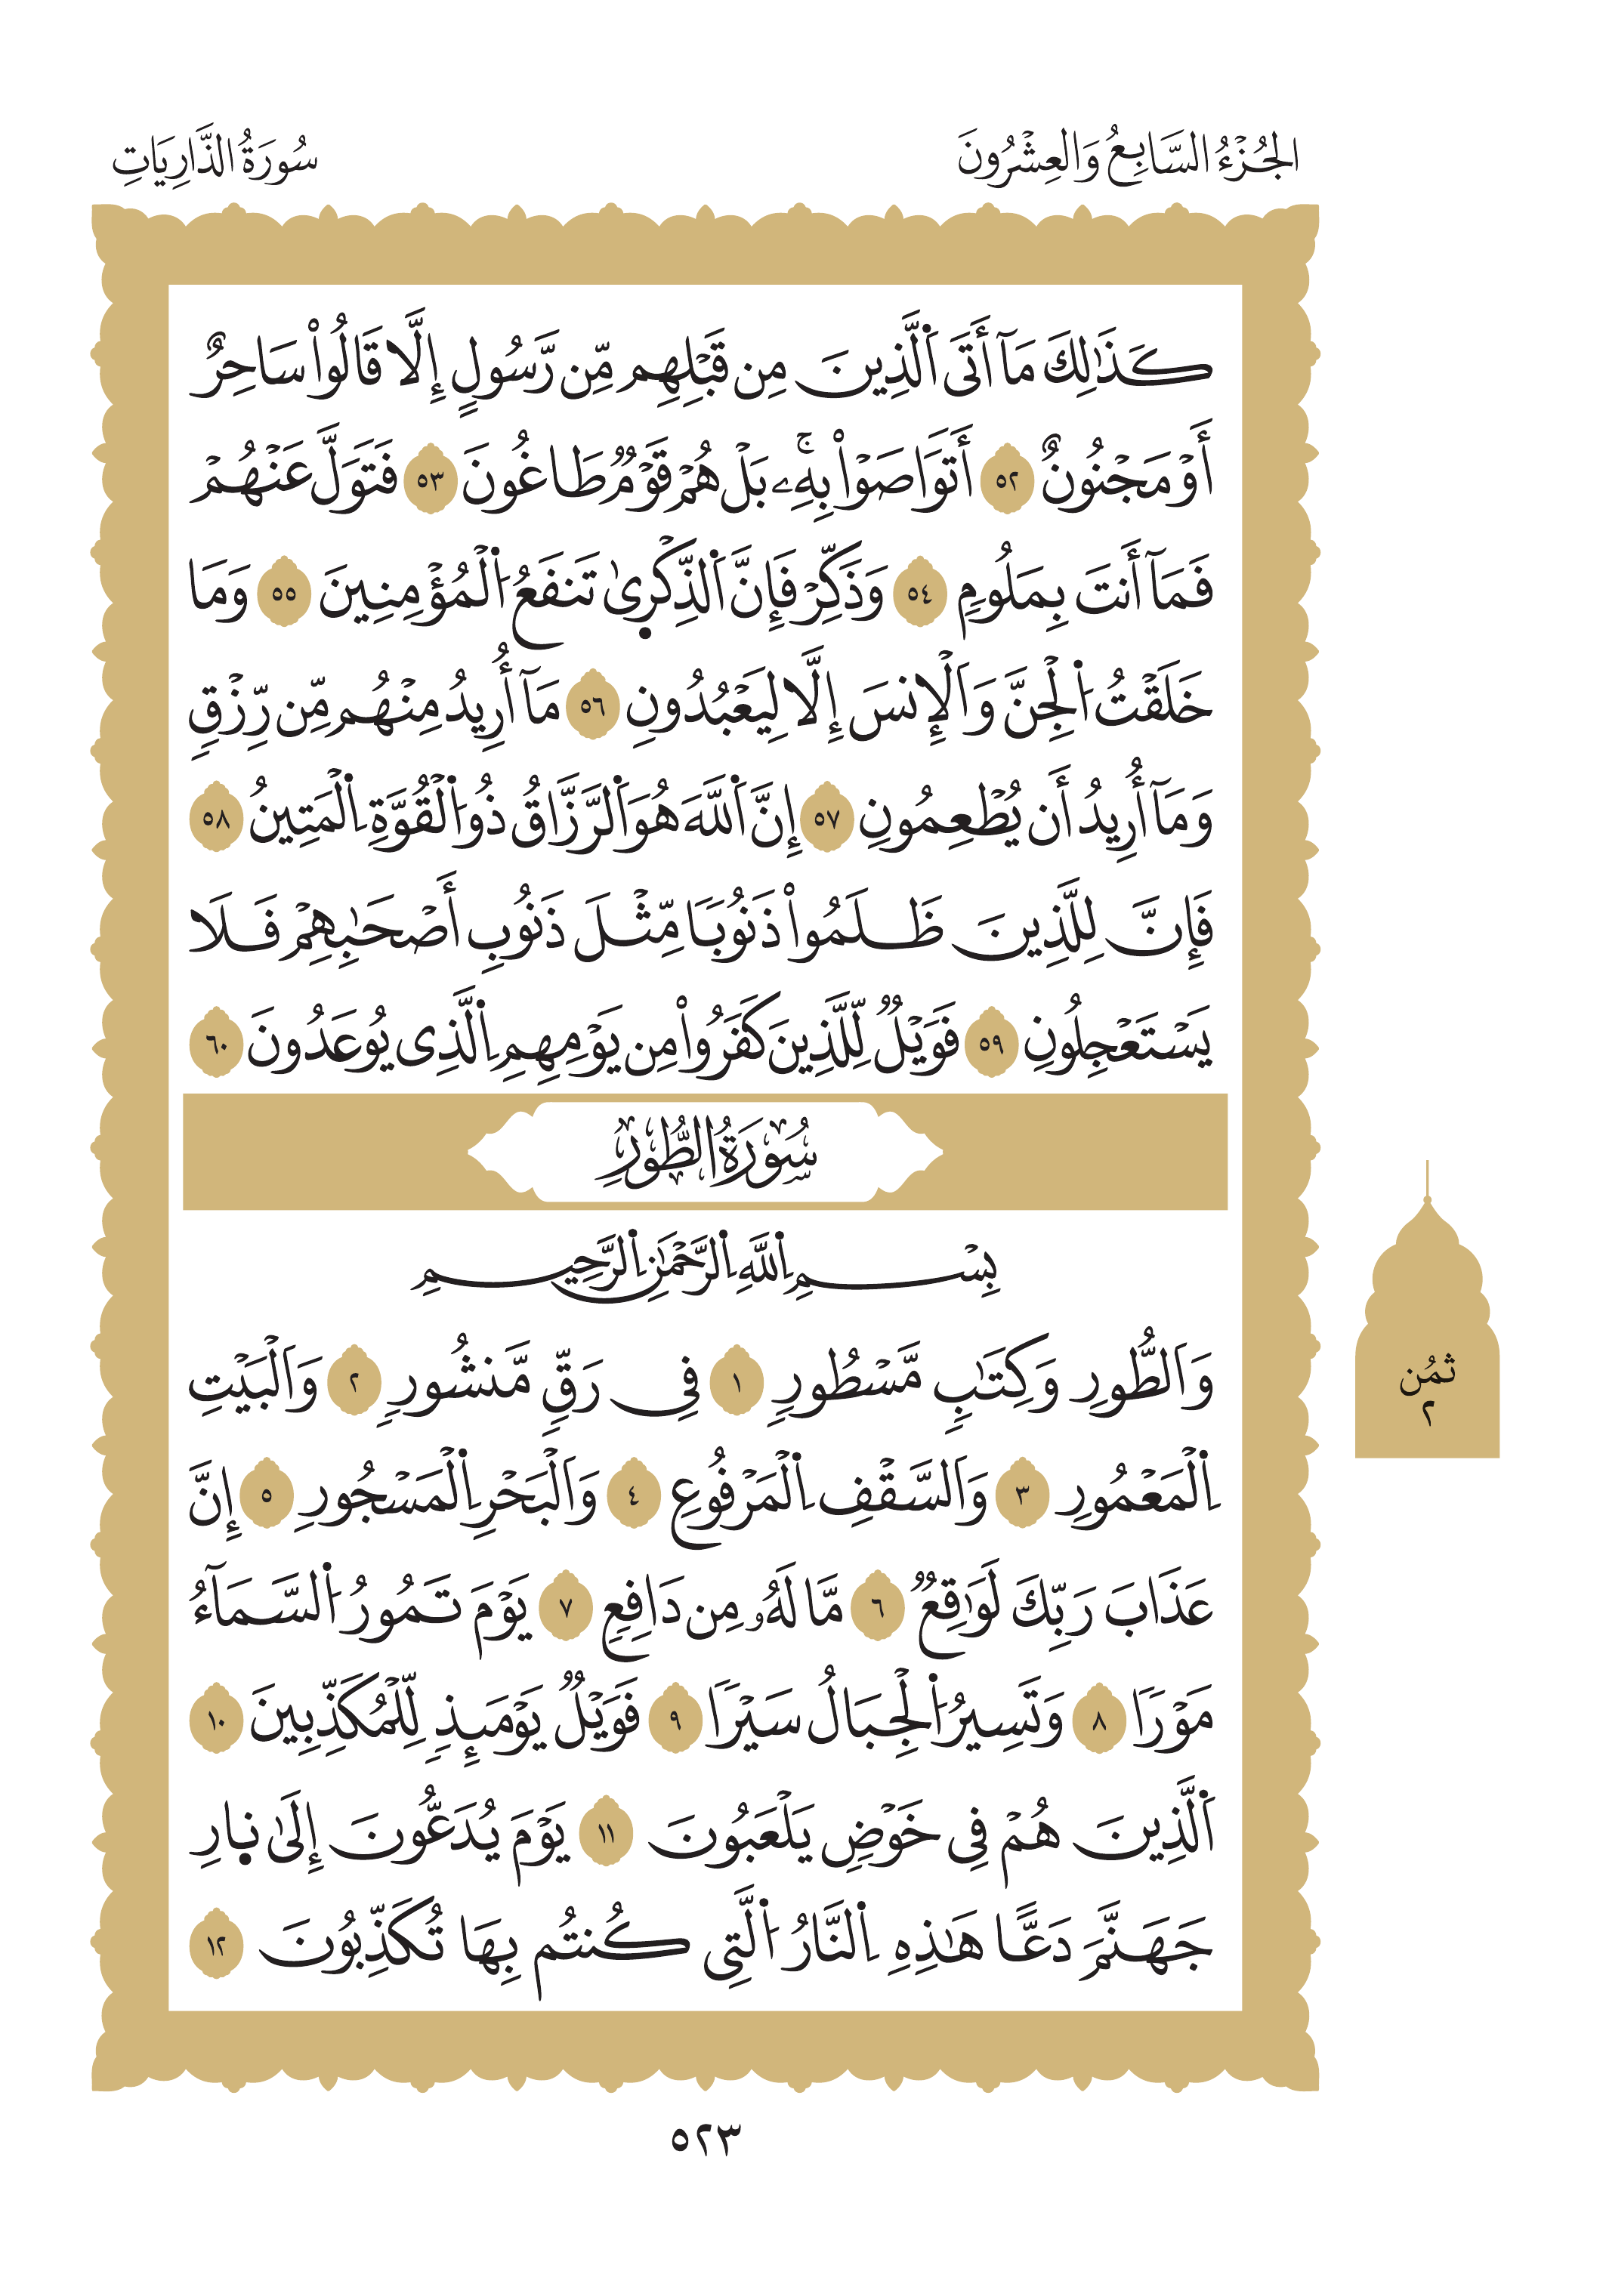 الجُزْءُ السَّابِعُ وَالعِشْرُونَ
سُورَةُ الذَّارِيَاتِ
كَذَٰلِكَ مَآ أَتَى اَ۬لَّذِينَ مِن قَبْلِهِم مِّن رَّسُولٍ إِلَّا قَالُواْ سَاحِرٌ
أَوْ مَجْنُونٌ ٥٢ أَتَوَاصَوْاْ بِهِۦۚ بَلْ هُمْ قَوْمٞ طَاغُونَ ٥٣ فَتَوَلَّ عَنْهُمْ
فَمَآ أَنتَ بِمَلُومٖ ٥٤ وَذَكِّرْ فَإِنَّ اَ۬لذِّكْر۪ىٰ تَنفَعُ اُ۬لْمُؤْمِنِينَ ٥٥ وَمَا
خَلَقْتُ اُ۬لْجِنَّ وَالْإِنسَ إِلَّا لِيَعْبُدُونِ ٥٦ مَآ أُرِيدُ مِنْهُم مِّن رِّزْقٖ
وَمَآ أُرِيدُ أَن يُطْعِمُونِ ٥٧ إِنَّ اَ۬للَّهَ هُوَ اَ۬لرَّزَّاقُ ذُو اُ۬لْقُوَّةِ اِ۬لْمَتِينُ ٥٨
فَإِنَّ لِلَّذِينَ ظَلَمُواْ ذَنُوبٗا مِّثْلَ ذَنُوبِ أَصْحَٰبِهِمْ فَلَا
يَسْتَعْجِلُونِ ٥٩ فَوَيْلٞ لِّلَّذِينَ كَفَرُواْ مِن يَوْمِهِمِ اِ۬لَّذِى يُوعَدُونَ ٦٠
سُورَةُ الطُّورِ
بِسْمِ اِ۬للَّهِ اِ۬لرَّحْمَٰنِ اِ۬لرَّحِيمِ
وَالطُّورِ وَكِتَٰبٖ مَّسْطُورٖ ١ فِى رَقّٖ مَّنشُورٖ ٢ وَالْبَيْتِ
اِ۬لْمَعْمُورِ ٣ وَالسَّقْفِ اِ۬لْمَرْفُوعِ ٤ وَالْبَحْرِ اِ۬لْمَسْجُورِ ٥ إِنَّ
عَذَابَ رَبِّكَ لَوَٰقِعٞ ٦ مَّا لَهُۥ مِن دَافِعٖ ٧ يَوْمَ تَمُورُ اُ۬لسَّمَآءُ
مَوْرٗا ٨ وَتَسِيرُ اُ۬لْجِبَالُ سَيْرٗا ٩ فَوَيْلٞ يَوْمَئِذٖ لِّلْمُكَذِّبِينَ ١٠
اَ۬لَّذِينَ هُمْ فِى خَوْضٖ يَلْعَبُونَ ١١ يَوْمَ يُدَعُّونَ إِلَىٰ ن۪ارِ
جَهَنَّمَ دَعًّا هَٰذِهِ اِ۬لنَّارُ اُ۬لَّتِى كُنتُم بِهَا تُكَذِّبُونَ ١٢
ثُمُن
٢
٥٢٣